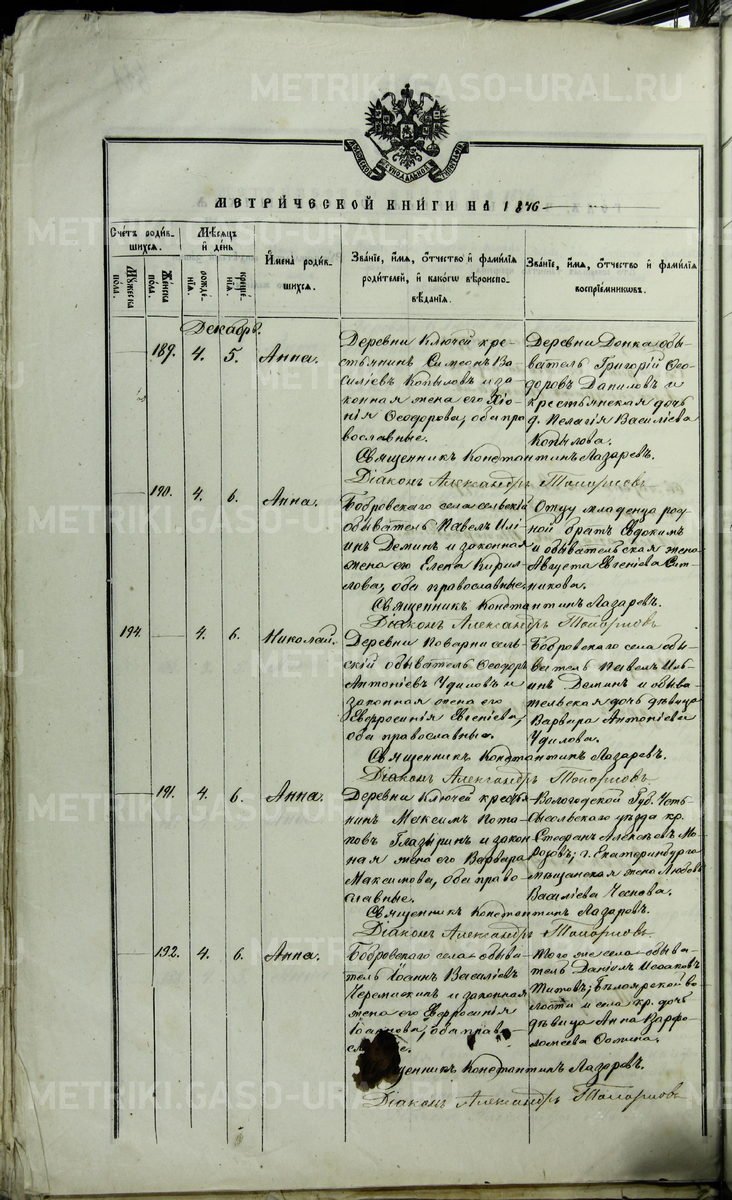 METRIKI.GASO-URAL.RU
МЕТРИЧЕСКОЙ КНИГИ НА 1876
Счетъ родившихся.
Мѣсяцъ и день
Имена родившихся.
Званіе, имя, отчество и фамилія родителей, и какогѡ вѣроисповѣданія.
Званіе, имя, отчество и фамилія воспріемниковъ.
Мꙋжеска пола.
Женска пола.
рожденія.
крещенія.
Декабрь.
189. 4. 5. Анна.
Деревни Ключей кре-
стьянинъ Симеонъ Ва-
силіевъ Копыловъ и за-
конная жена его Хіо-
нія Ѳеодорова, оба пра
вославные.
Деревни Донка обы-
ватель Григорій Ѳео-
доровъ Даниловъ и
крестьянская дочь
д. Пелагія Василіева
Копылова.
Священникъ Константинъ Лазаревъ.
Діаконъ Александръ
190. 4. 6. Анна.
Бобровскаго села сельскій
обыватель Павелъ Иль
инъ Деминъ и законная
жена его Елена Кирил-
лова, оба православные.
Отцу младенца род
ной братъ Евдокимъ
и обывательская жена
Августа Евгеніева
Священникъ Константинъ Лазаревъ.
Діаконъ Александръ
194. 4. 6. Николай.
Деревни Поварни сель-
скій обыватель Ѳеодоръ
Антоніевъ Удиловъ и
законная жена его
Евфросинія Евгеніева,
оба православные.
Бобровскаго села обы-
ватель Павелъ Иль-
инъ Деминъ и обыва-
тельская дочь дѣвица
Варвара Антоніева
Удилова.
Священникъ Константинъ Лазаревъ.
Діаконъ Александръ
191. 4. 6. Анна.
Деревни Ключей кресть
янинъ Максимъ Пота-
повъ Глазыринъ и закон
ная жена его Варвара
Максимова, оба право
славные.
Вологодской Губ. Усть-
сысольскаго уѣзда кр.
Стефанъ Алексѣевъ Мо-
розовъ; г. Екатеринбурга
мѣщанская жена Любовь
Василіева Чеснова.
Священникъ Константинъ Лазаревъ.
Діаконъ Александръ
192. 4. 6. Анна.
Бобровскаго села обыва-
тель Іоаннъ Василіевъ
Черемискинъ и законная
жена его Евфросинія
Іоаннова, оба право-
Того же села обыва-
тель Даніилъ Исааковъ
Титовъ; Бѣлоярской во
лости и села кр. дочь
дѣвица Анна Варфо-
ломеева
Священникъ Константинъ Лазаревъ.
Діаконъ Александръ